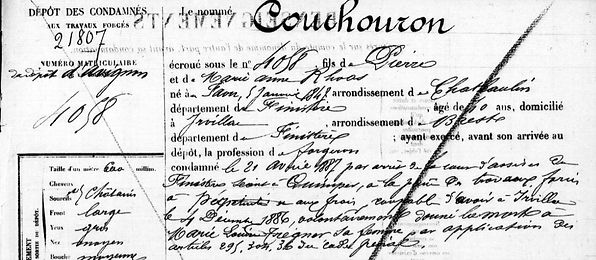 DÉPÔT DES CONDAMNÉS
AUX TRAVAUX FORCÉS
21807
NUMÉRO MATRICULAIRE
du dépôt d'Avignon
4058
Le nommé Couchouron
écroué sous le n° 4058, fils de Pierre
et de Marie Anne
né à 5 Janvier 1847 arrondissement de Chateaulin
département de Finistère, âgé de 40 ans, domicilié
à Irvillac, arrondissement de Brest
département de Finistère; ayant exercé, avant son arrivée au
dépôt, la profession de forgeron
condamné le 21 avril 1887 par arrêt de la cour d'assises du
Finistère séant à Quimper, à la peine des travaux forcés
à perpétuité et aux frais, coupable d'avoir à Irvillac
le 4 Décembre 1886, volontairement donné la mort à
Marie Louise sa femme, en application des
articles 295, 304, 36 du code pénal.
Taille d'un mètre 600 millim.
Cheveux
Sourcils Châtains
Front large
Yeux gris
Nez moyen
Bouche moyenne